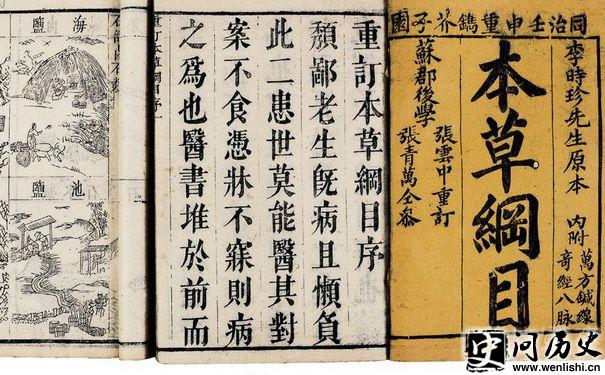 同治壬申重鐫芥子園
李時珍先生原本
內附
萬方鍼線
奇經八脉
本草綱目
蘇郡後學
張雲中重訂
張青萬仝參
重訂本草綱目序
頹鄙老生既病且懶負
此二患世莫能醫其對
案不食憑牀不寐則病
之爲也醫書堆於前而
重訂本草綱目序
海鹽
池鹽
问历史
www.wenlishi.cn